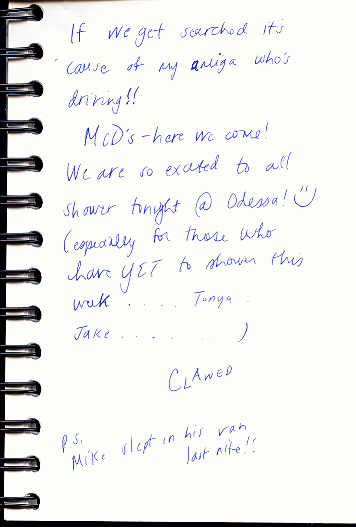 If we get searched it's
'cause of my amiga who's
driving!!
McD's - here we come!
We are so excited to all
shower tonight @ Odessa! :)
(especially for those who
have YET to shower this
week .... Tonya.
Jake........)
CLAWED
P.S.
Mike slept in his van
last nite!!